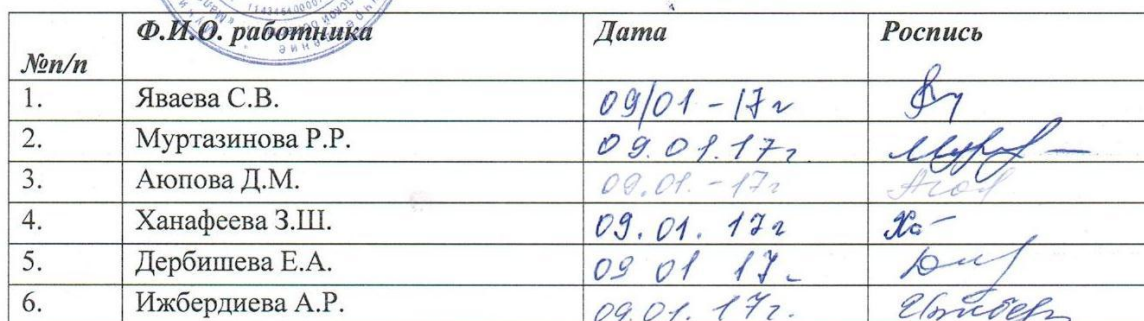 Ф.И.О. работника Дата Роспись
№п/п
1. Яваева С.В. 09/01-17г
2. Муртазинова Р.Р. 09.01.17г
3. Аюпова Д.М. 09.01.-17г
4. Ханафеева З.Ш. 09.01.17г
5. Дербишева Е.А. 09 01 17
6. Ижбердиева А.Р. 09.01.17г.